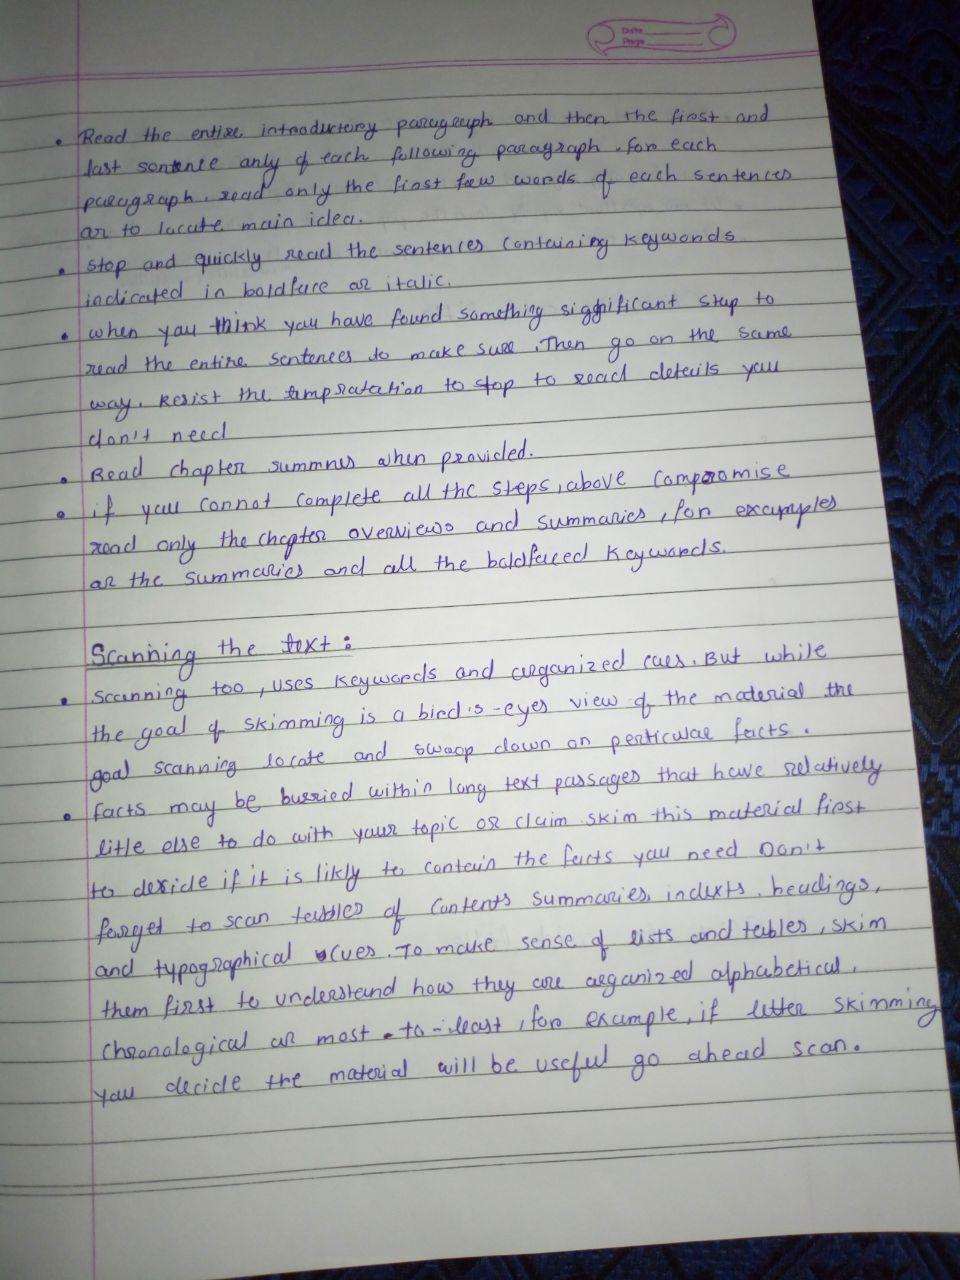 Date
Page
• Read the entire introductory paragraph and then the first and
last sentence only of each following paragraph. for each
paragraph, read only the first few words of each sentences
or to locate main idea.
• stop and quickly read the sentences containing keywords
indicated in boldface or italic.
• when you think you have found something significant stop to
read the entire sentences to make sure. Then go on the same
way. Resist the tempratation to stop to read details you
don't need
• Read chapter summries when provided.
• if you cannot complete all the steps, above compromise
read only the chapter overviews and summaries, for examples
or the summaries and all the boldfaced keywords.
Scanning the text :
• scanning too, uses keywords and organized cues. But while
the goal of skimming is a bird's-eyes view of the material the
goal scanning locate and swoop down on perticular facts.
• facts may be burried within long text passages that have relatively
litle else to do with your topic or claim skim this material first
to decide if it is likly to contain the facts you need Don't
forget to scan tables of contents summaries, indexts. headings,
and typographical cues. To make sense of lists and tables, skim
them first to understand how they are organized alphabetical,
chronological or most-to-least, for example, if letter skimming
you decide the material will be useful go ahead scan.